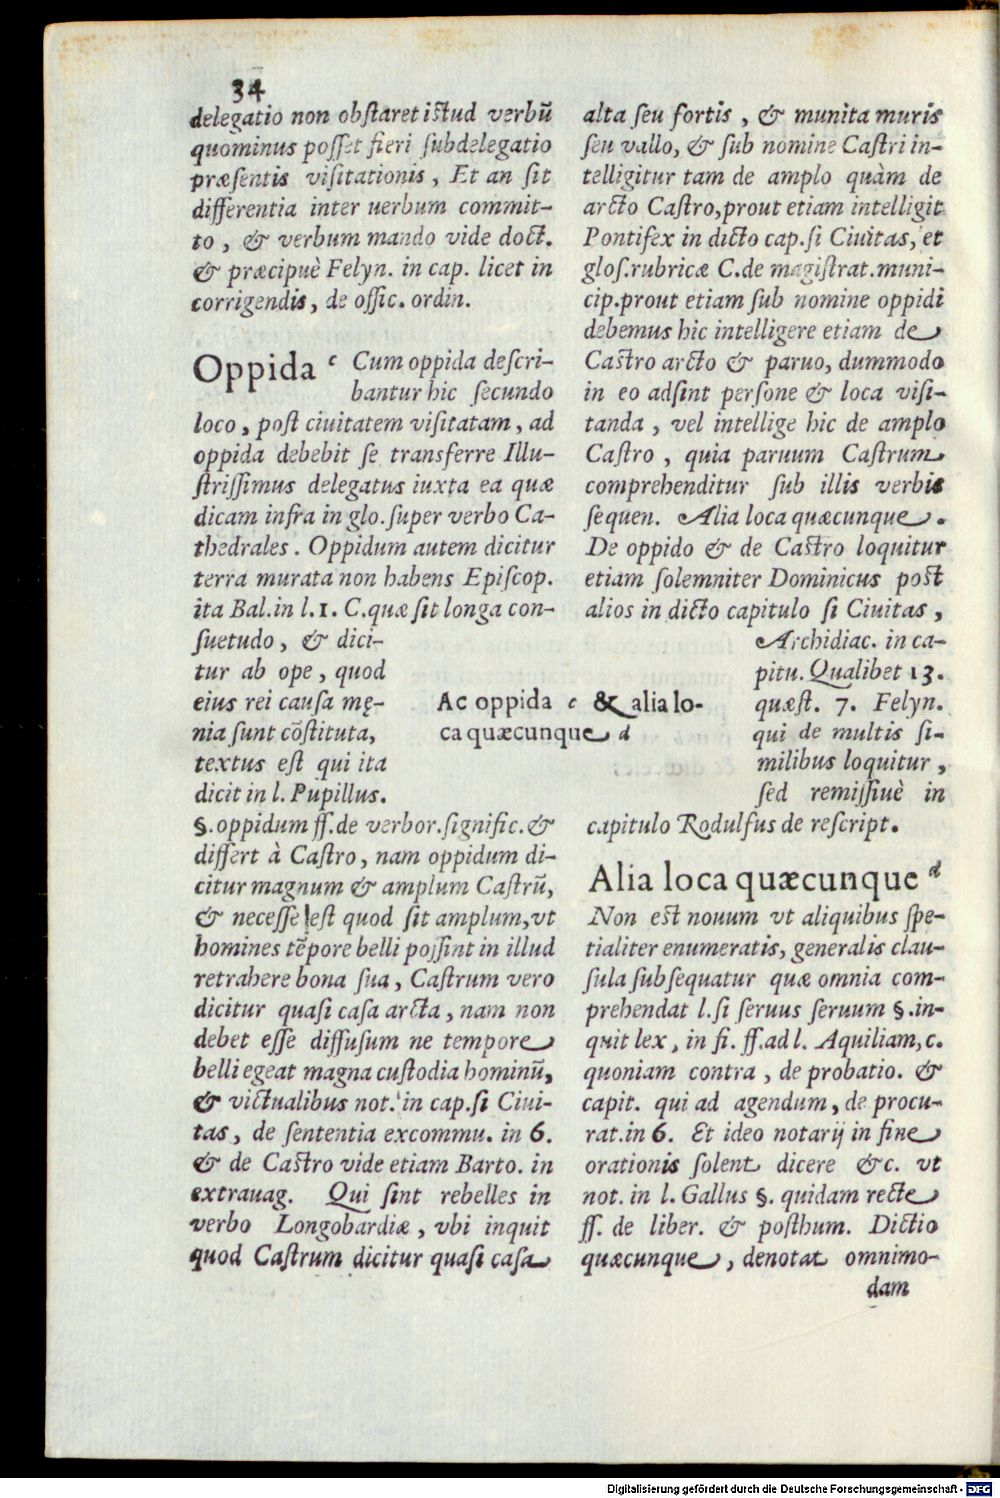 34
delegatio non obstaret istud verbũ
quominus posset fieri subdelegatio
præsentis visitationis, Et an sit
differentia inter uerbum commit-
to, & verbum mando vide doct.
& præcipuè Felyn. in cap. licet in
corrigendis, de offic. ordin.
Oppida c Cum oppida descri-
bantur hic secundo
loco, post ciuitatem visitatam, ad
oppida debebit se transferre Illu-
strissimus delegatus iuxta ea quæ
dicam infra in glo. super verbo Ca-
thedrales. Oppidum autem dicitur
terra murata non habens Episcop.
ita Bal. in l. 1. C. quæ sit longa con-
suetudo, & dici-
tur ab ope, quod
eius rei causa mę-
nia sunt cõstituta,
textus est qui ita
dicit in l. Pupillus.
§. oppidum ff. de verbor. signific. &
differt à Castro, nam oppidum di-
citur magnum & amplum Castrũ,
& necesse est quod sit amplum, vt
homines tẽpore belli possint in illud
retrahere bona sua, Castrum vero
dicitur quasi casa arcta, nam non
debet esse diffusum ne tempore
belli egeat magna custodia hominũ,
& victualibus not. in cap. si Ciui-
tas, de sententia excommu. in 6.
& de Castro vide etiam Barto. in
extrauag. Qui sint rebelles in
verbo Longobardiæ, vbi inquit
quod Castrum dicitur quasi casa
Ac oppida c & alia lo-
ca quæcunque d
alta seu fortis, & munita muris
seu vallo, & sub nomine Castri in-
telligitur tam de amplo quàm de
arcto Castro, prout etiam intelligit
Pontifex in dicto cap. si Ciuitas, et
glos. rubricæ C. de magistrat. muni-
cip. prout etiam sub nomine oppidi
debemus hic intelligere etiam de
Castro arcto & paruo, dummodo
in eo adsint persone & loca visi-
tanda, vel intellige hic de amplo
Castro, quia paruum Castrum
comprehenditur sub illis verbis
sequen. Alia loca quæcunque.
De oppido & de Castro loquitur
etiam solemniter Dominicus post
alios in dicto capitulo si Ciuitas,
Archidiac. in ca-
pitu. Qualibet 13.
quæst. 7. Felyn.
qui de multis si-
milibus loquitur,
sed remissiuè in
capitulo Rodulfus de rescript.
Alia loca quæcunque d
Non est nouum vt aliquibus spe-
tialiter enumeratis, generalis clau-
sula subsequatur quæ omnia com-
prehendat l. si seruus seruum §. in-
quit lex, in fi. ff. ad l. Aquiliam, c.
quoniam contra, de probatio. &
capit. qui ad agendum, de procu-
rat. in 6. Et ideo notarij in fine
orationis solent dicere &c. vt
not. in l. Gallus §. quidam recte
ff. de liber. & posthum. Dictio
quæcunque, denotat omnimo-
dam
Digitalisierung gefördert durch die Deutsche Forschungsgemeinschaft - DFG